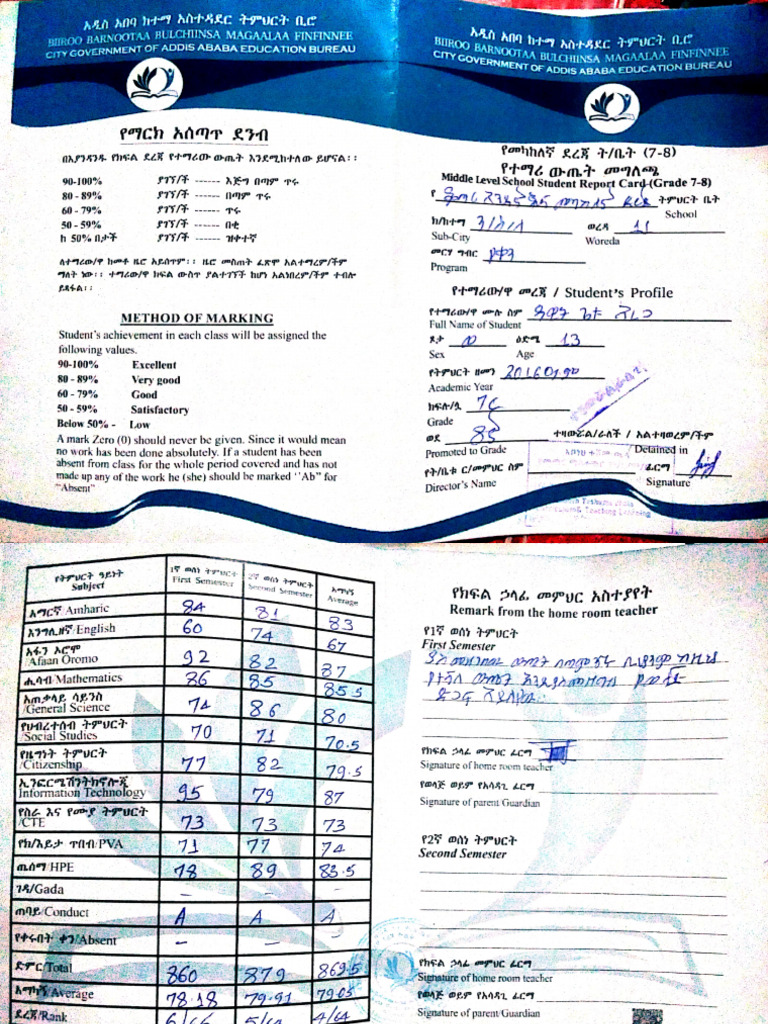 አዲስ አበባ ከተማ አስተዳደር ትምህርት ቢሮ
BIIROO BARNOOTAA BULCHIINSA MAGAALAA FINFINNEE
CITY GOVERNMENT OF ADDIS ABABA EDUCATION BUREAU
የማርክ አሰጣጥ ደንብ
በእያንዳንዱ የክፍል ደረጃ የተማሪው ውጤት እንደሚከተለው ይሆናል፡፡
90-100% ያገኘ/ች ------ እጅግ በጣም ጥሩ
80 - 89% ያገኘ/ች ------ በጣም ጥሩ
60 - 79% ያገኘ/ች ------ ጥሩ
50 - 59% ያገኘ/ች ------ በቂ
ከ 50% በታች ያገኘ/ች ------ ዝቀተኛ
ለተማሪው/ዋ ከመቶ ዜሮ አይሰጥም፡፡ ዜሮ መስጠት ፈጽሞ አልተማረም/ችም
ማለት ነው፡፡ ተማሪው/ዋ ክፍል ውስጥ ያልተገኘች ከሆነ አልነበረም/ችም ተብሎ
ይጻፋል፡፡
METHOD OF MARKING
Student's achievement in each class will be assigned the
following values.
90-100% Excellent
80 - 89% Very good
60 - 79% Good
50 - 59% Satisfactory
Below 50% - Low
A mark Zero (0) should never be given. Since it would mean
no work has been done absolutely. If a student has been
absent from class for the whole period covered and has not
made up any of the work he (she) should be marked ''Ab" for
"Absent"
አዲስ አበባ ከተማ አስተዳደር ትምህርት ቢሮ
BIIROO BARNOOTAA BULCHIINSA MAGAALAA FINFINNEE
CITY GOVERNMENT OF ADDIS ABABA EDUCATION BUREAU
የመካከለኛ ደረጃ ት/ቤት (7-8)
የተማሪ ውጤት መግለጫ
Middle Level School Student Report Card (Grade 7-8)
የ ትምህርት ቤት
School
ክ/ከተማ ወረዳ 11
Sub-City Woreda
መርሃ ግብር
Program
የተማሪው/ዋ መረጃ / Student's Profile
የተማሪው/ዋ ሙሉ ስም ዳዊት
Full Name of Student
ጾታ ወ ዕድሜ 13
Sex Age
የትምህርት ዘመን 2016
Academic Year
ክፍሉ/ሏ 7C
Grade
ወደ ተዛውሯል/ራለች / አልተዛወረም/ችም
Promoted to Grade Detained in
የት/ቤቱ ር/መምህር ስም ፊርማ
Director's Name Signature
የትምህርት ዓይነት 1ኛ ወሰነ ትምህርት 2ኛ ወሰነ ትምህርት አማካኝ
Subject First Semester Second Semester Average
አማርኛ/Amharic 84 81 83
እንግሊዘኛ/English 60 74 67
አፋን ኦሮሞ
/Afaan Oromo 92 82 87
ሒሳብ/Mathematics 86 85 85.5
አጠቃላይ ሳይንስ
/General Science 74 86 80
የህብረተሰብ ትምህርት
/Social Studies 70 71 70.5
የዜግነት ትምህርት
/Citizenship 77 82 79.5
ኢንፎርሜሽንትክኖሎጂ
Information Technology 95 79 87
የስራ እና የሙያ ትምህርት
/CTE 73 73 73
የክ/እይታ ጥበብ/PVA 71 77 74
ጤሰማ/HPE 78 89 83.5
ገዳ/Gada – –
ጠባይ/Conduct A A A
የቀሩበት ቀን/Absent – –
ድምር/Total 860 879 869.5
አማካኝ/Average 78.18 79.91 79.05
ደረጃ/Rank 5/64 4/64
የክፍል ኃላፊ መምህር አስተያየት
Remark from the home room teacher
የ1ኛ ወሰነ ትምህርት
First Semester
የክፍል ኃላፊ መምህር ፊርማ
Signature of home room teacher
የወላጅ ወይም የአሳዳጊ ፊርማ
Signature of parent Guardian
የ2ኛ ወሰነ ትምህርት
Second Semester
የክፍል ኃላፊ መምህር ፊርማ
Signature of home room teacher
የወላጅ ወይም የአሳዳጊ ፊርማ
Signature of parent/Guardian